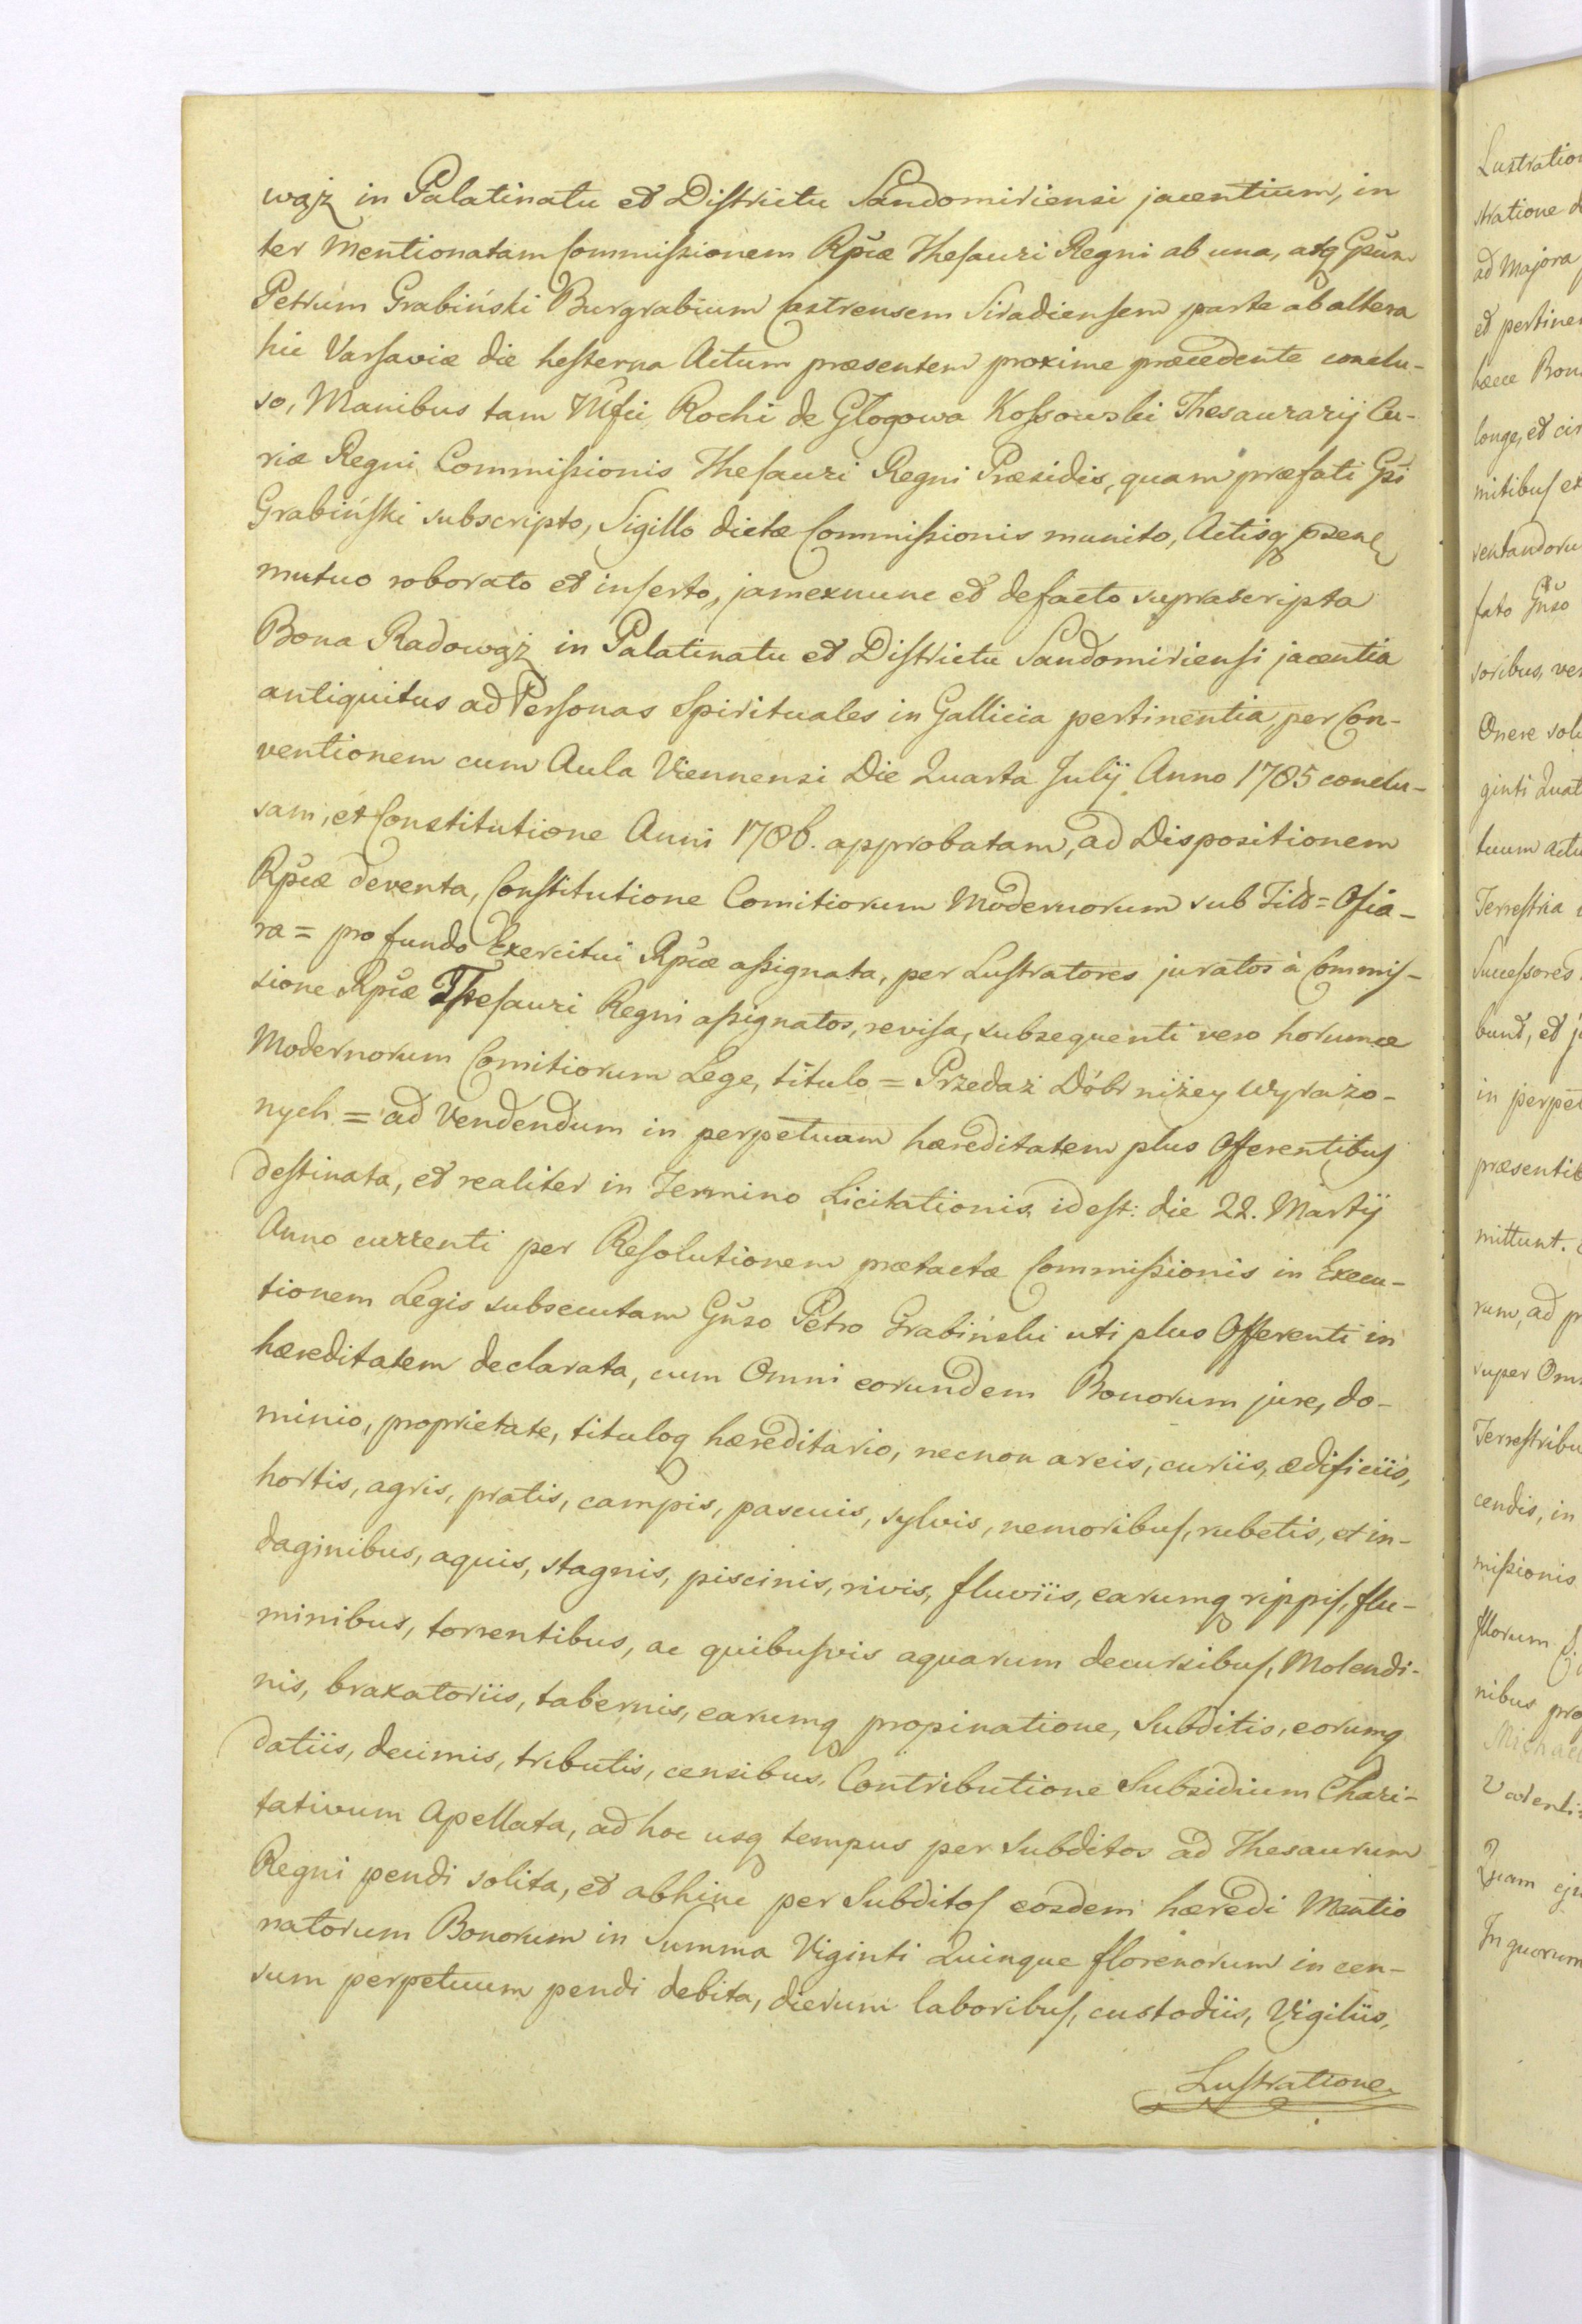 wąż in Palatinatu et Districtu Sandomiriensi jacentium, in
ter Mentionatam Commissionem Rpcæ Thesauri Regni ab una, atq Gsum
Petrum Grabiński Burgrabium Castrensem Siradiensem parte ab altera
hic Varsaviæ die hesterna Actum præsentem proxime præcedente conclu-
so, Manibus tam Mfci Rochi de Głogowa Kossowski Thesaurarij Cu-
riæ Regni Commissionis Thesauri Regni Præsidis, quam præfati Gsi
Grabiński subscripto, Sigillo dictæ Commissionis munito, Actisq
mutuo roborato et inserto, jamexnunc et defacto suprascripta
Bona Radowąż in Palatinatu et Districtu Sandomiriensi jacentia
antiquitus ad Personas Spirituales in Gallicia pertinentia, per Con-
ventionem cum Aula Viennensi Die Quarta Julij Anno 1785 conclu-
sam, et Constitutione Anni 1786. approbatam, ad Dispositionem
Rpcæ deventa, Constitutione Comitiorum Modernorum sub Titō = Ofia-
ra = pro fundo Exercitui Rpcæ assignata, per Lustratores juratos à Commis-
sione Rpcæ Thesauri Regni assignatos, revisa, subsequenti vero horumce
Modernorum Comitiorum Lege, titulo = Przedaż Dóbr niżey wyrażo-
nych = ad Vendendum in perpetuam hæreditatem plus Offerentibus
destinata, et realiter in Termino Licitationis idest: die 22. Martij
Anno currenti per Resolutionem prætactæ Commissionis in Execu-
tionem Legis subsecutam Gnso Petro Grabiński uti plus Offerenti in
hæreditatem declarata, cum Omni eorundem Bonorum jure, do-
minio, proprietate, tituloq hæreditario, necnon areis, curiis, ædificiis,
hortis, agris, pratis, campis, pascuis, sylvis, nemoribus, rubetis, et in-
daginibus, aquis, stagnis, piscinis, rivis, fluviis, earumq rippis, flu-
minibus, torrentibus, ac quibusvis aquarum decursibus, Molendi-
nis, braxatoriis, tabernis, earumq propinatione, Subditis, eorumq
datiis, decimis, tributis, censibus, Contributione Subsidium Chari-
tativum Apellata, ad hoc usq tempus per Subditos ad Thesaurum
Regni pendi solita, et abhinc per Subditos eosdem hæredi Mentio
natorum Bonorum in Summa Viginti Quinque florenorum in cen-
sum perpetuum pendi debita, dierum laboribus, custodiis, Vigiliis,
Lustratione
Lustration
stratione
ad Majora
et pertinen
hæce Bon
longe, et cir
mitibus et
ventandoru
fato Gnso
soribus, ve
Onere sol
ginti Quat
tuum actu
Terrestria
Successores
bunt, et
in perpet
præsentib
mittunt.
rum, ad
super Om
Terrestribu
cendis, in
missionis
nibus pro
Quam eju
In quorum